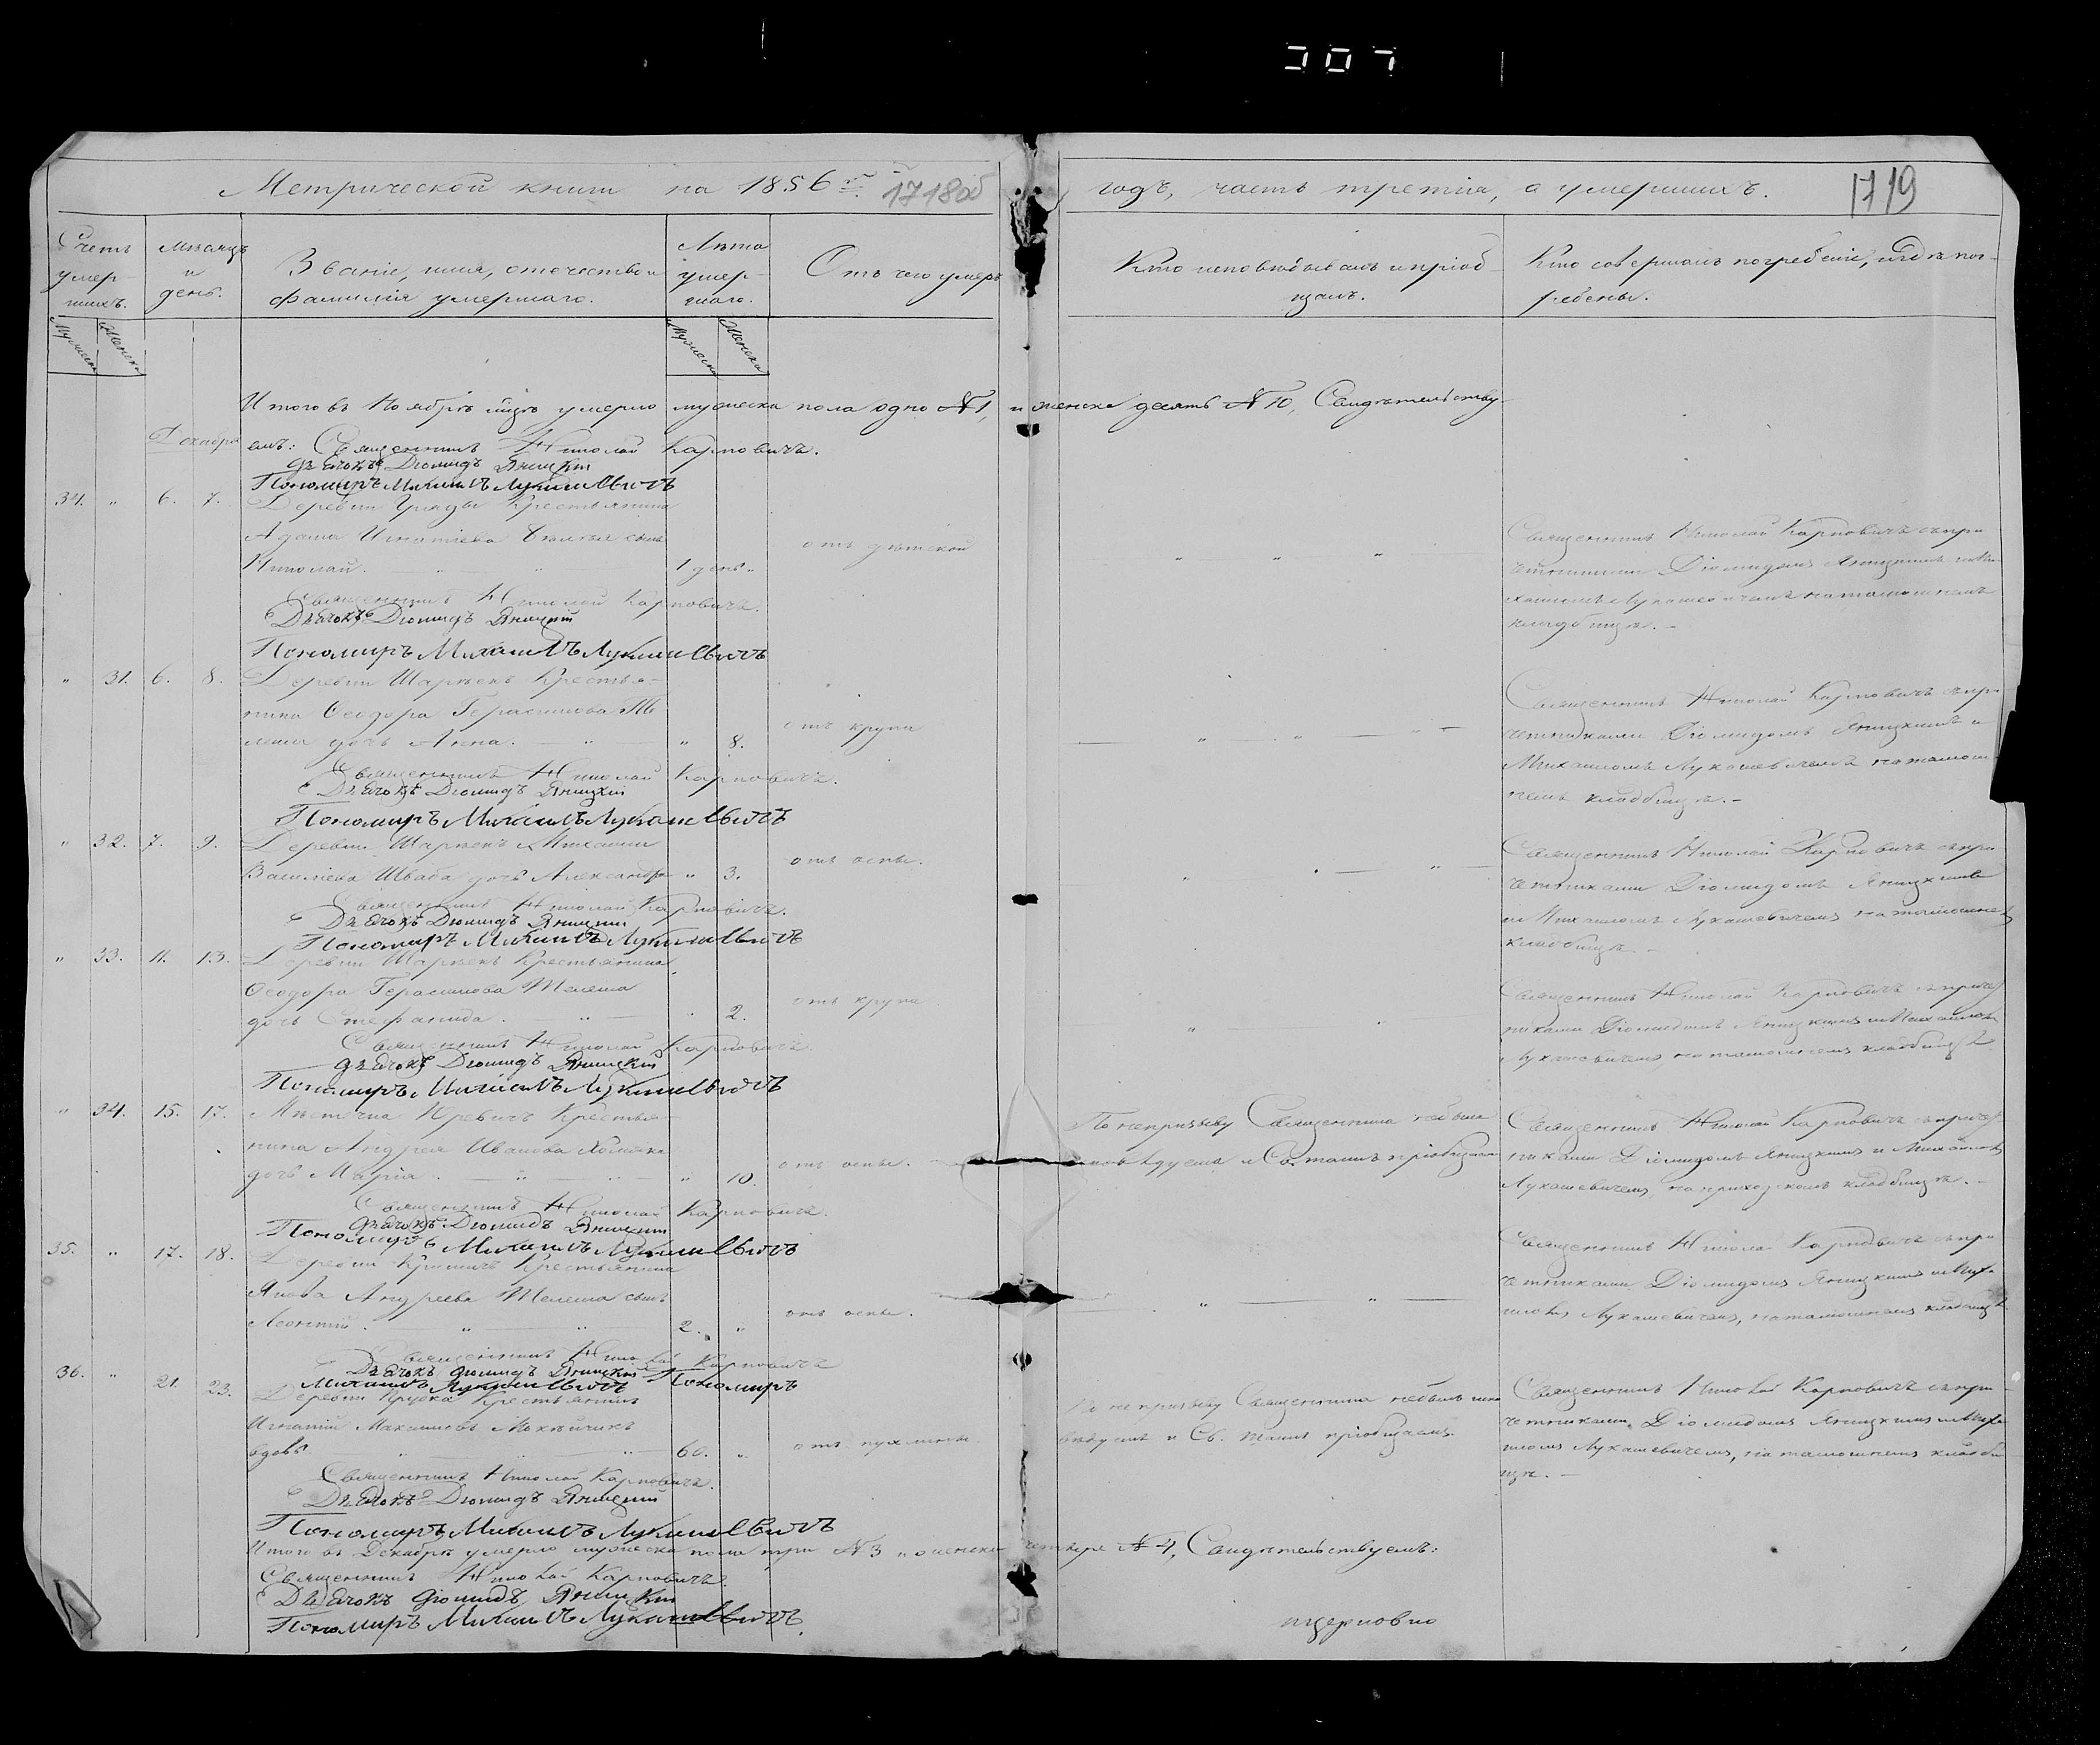 307
Метрической книги на 1856й 1718об
годъ, часть третiя, о умершихъ. 1719
Счетъ умер-шихъ.
Мѣсяцъ и день.
Званiе, имя, отечество и фамилiя умершаго.
Лѣта умер-шаго.
Отъ чего умеръ
Кто исповѣдывалъ и прiоб-щалъ.
Кто совершалъ погребенiе, и гдѣ по-гребены.
Мужеска Женска
Мужеска Женска
Итого въ Ноябрѣ мцѣ умерло мужеска пола одно №1, и женска десять №10, Свидѣтельству-
Декабря
емъ: Священникъ Николай Карповичъ.
Дьячокъ Дiомидъ Яницкiй
Пономарь Михаилъ Лукашевичъ
34. " 6. 7.
Деревни Гряды Крестьянина
Адама Игнатiева сынъ
Николай. 1 день "
отъ дѣтской
Священникъ Николай Карповичъ съ при-
четниками Дiомидомъ Яницкимъ и Ми-
хаиломъ Лукашевичемъ на тамошнемъ
кладбищѣ. -
Священникъ Николай Карповичъ.
Дьячокъ Дiомидъ Яницкiй
Пономарь Михаилъ Лукашевичъ
" 31. 6. 8.
Деревни Шарпекъ Крестья-
нина Ѳеодора Герасимова Те-
леша дочь Анна. " 8.
отъ крупа
Священникъ Николай Карповичъ съ при-
четниками Дiомидомъ Яницкимъ и
Михаиломъ Лукашевичемъ на тамош-
немъ кладбищѣ. -
Священникъ Николай Карповичъ.
Дьячокъ Дiомидъ Яницкiй
Пономарь Михаилъ Лукашевичъ
" 32. 7. 9.
Деревни Шарпекъ Михаила
Василiева Шваба дочь Александра " 3.
отъ оспы.
Священникъ Николай Карповичъ съ при-
четниками Дiомидомъ Яницкимъ
и Михаиломъ Лукашевичемъ на тамошнемъ
кладбищѣ. -
Священникъ Николай Карповичъ.
Дьячокъ Дiомидъ Яницкiй
Пономарь Михаилъ Лукашевичъ
" 33. 11. 13.
Деревни Шарпекъ Крестьянина
Ѳеодора Герасимова Телеша
дочь Стефанида. " 2.
отъ крупа
Священникъ Николай Карповичъ съ причет-
никами Дiомидомъ Яницкимъ и Михаиломъ
Лукашевичемъ, на тамошнемъ кладбищѣ
Священникъ Николай Карповичъ.
Дьячокъ Дiомидъ Яницкiй
Пономарь Михаилъ Лукашевичъ
" 34. 15. 17.
Мѣстечка Юревичъ Крестья-
нина Андрея Иванова
дочь Марiя. " 10.
отъ оспы.
По непризыву Священника не была
исповѣдуема и Св. таинъ прiобщаема
Священникъ Николай Карповичъ съ причет-
никами Дiомидомъ Яницкимъ и Михаиломъ
Лукашевичемъ, на приходскомъ кладбищѣ. -
Священникъ Николай Карповичъ.
Дьячокъ Дiомидъ Яницкiй
Пономарь Михаилъ Лукашевичъ
35. " 17. 18.
Деревни Кришичъ Крестьянина
Якова Андреева Телеша сынъ
Леонтiй. 2. "
отъ оспы.
Священникъ Николай Карповичъ съ при-
четниками Дiомидомъ Яницкимъ и Миха-
иломъ Лукашевичемъ, на тамошнемъ кладбищѣ
Священникъ Николай Карповичъ
Дьячокъ Дiомидъ Яницкiй Пономарь
Михаилъ Лукашевичъ
36. " 21. 23.
Деревни Прудка Крестьянинъ
Игнатiй Максимовъ
вдовъ 60. "
отъ пухлины
По непризыву Священника не былъ испо-
вѣдуемъ и Св. таинъ прiобщаемъ.
Священникъ Николай Карповичъ съ при-
четниками, Дiомидомъ Яницкимъ и Миха-
иломъ Лукашевичемъ, на тамошнемъ кладби-
щѣ. -
Священникъ Николай Карповичъ.
Дьячокъ Дiомидъ Яницкiй
Пономарь Михаилъ Лукашевичъ
Итого въ Декабрѣ умерло мужеска пола три №3 и женска четыре №4, Свидѣтельствуемъ:
Священникъ Николай Карповичъ.
Дьячокъ Дiомидъ Яницкiй
Пономарь Михаилъ Лукашевичъ.